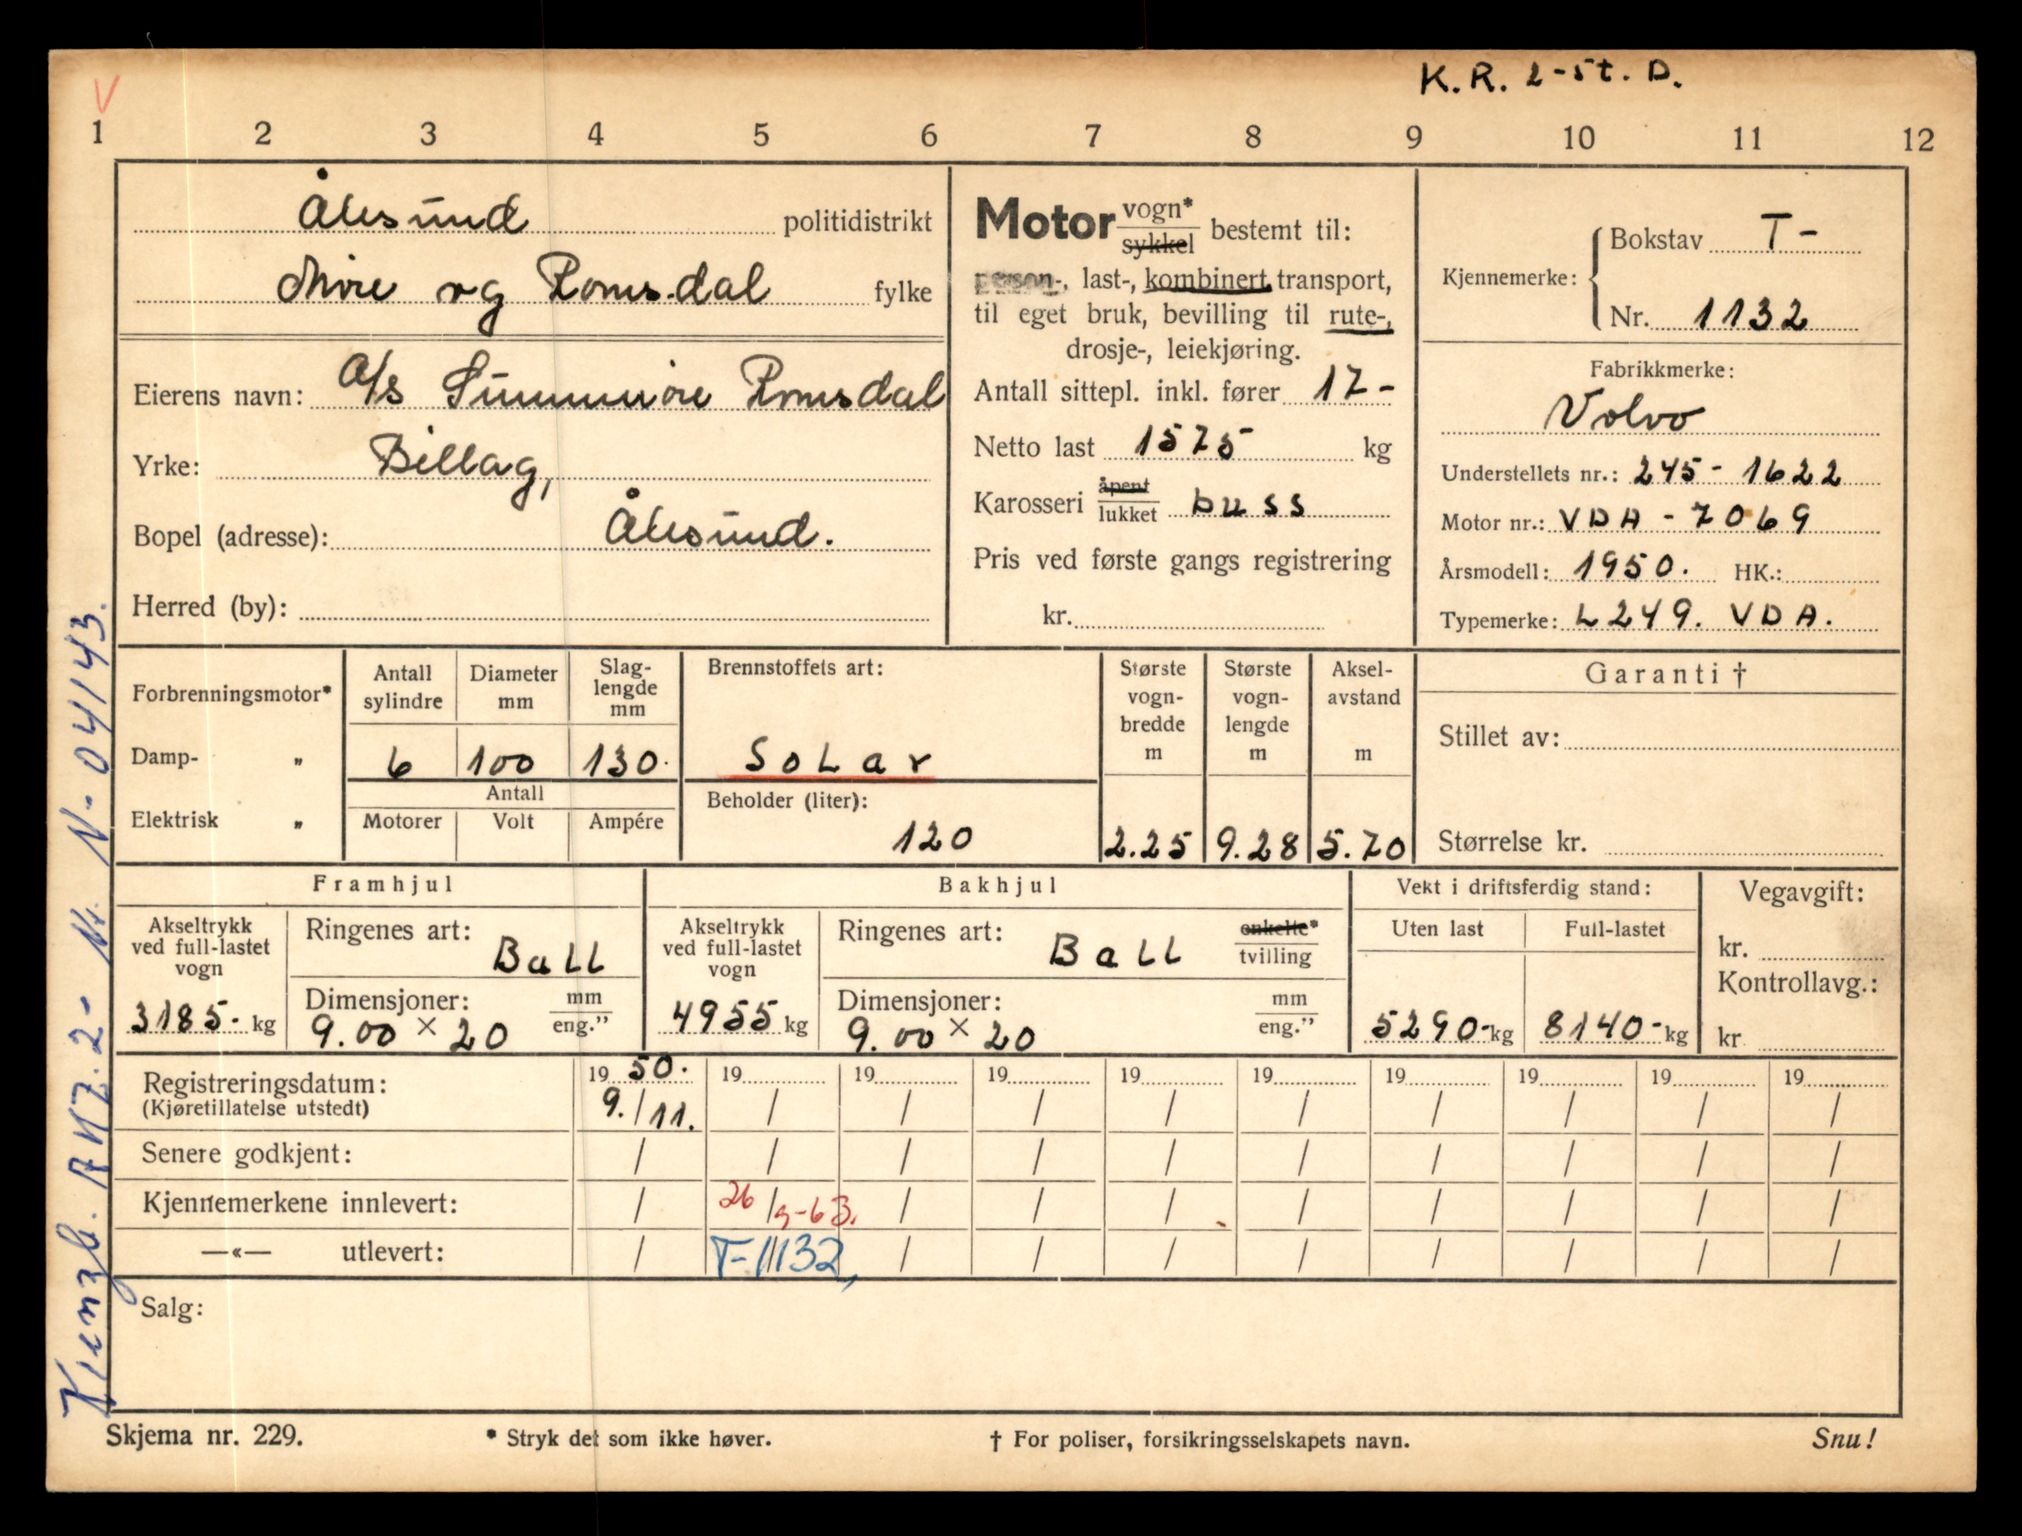 K.R. 2-st. D.
V
1 2 3 4 5 6 7 8 9 10 11 12
Ålesund politidistrikt
Møre og Romsdal fylke
Eierens navn: A/s Sunnmøre Romsdal
Yrke: Billag,
Bopel (adresse): Ålesund.
Herred (by):
Motor vogn* sykkel bestemt til:
person-, last-, kombinert transport,
til eget bruk, bevilling til rute-,
drosje-, leiekjøring.
Antall sittepl. inkl. fører 17-
Netto last 1575 kg
Karosseri åpent lukket buss
Pris ved første gangs registrering
kr.
Kjennemerke: Bokstav T-
Nr. 1132
Fabrikkmerke:
Volvo
Understellets nr.: 245-1622
Motor nr.: VDA-7069
Årsmodell: 1950. HK.:
Typemerke: L249. VDA.
Forbrenningsmotor*
Damp- „
Elektrisk „
Antall sylindre 6
Diameter mm 100
Slaglengde mm 130.
Antall
Motorer Volt Ampére
Brennstoffets art:
Solar
Beholder (liter):
120
Største vogn-bredde m 2.25
Største vogn-lengde m 9.28
Aksel-avstand m 5.70
Garanti †
Stillet av:
Størrelse kr.
Framhjul
Akseltrykk ved full-lastet vogn
3185.- kg
Ringenes art: Ball
Dimensjoner: mm eng.”
9.00 × 20
Bakhjul
Akseltrykk ved full-lastet vogn
4955 kg
Ringenes art: Ball enkelte* tvilling
Dimensjoner: mm eng.”
9.00 × 20
Vekt i driftsferdig stand:
Uten last Full-lastet
5290-kg 8140-kg
Vegavgift:
kr.
Kontrollavg.:
kr
Registreringsdatum: 19 50. 19 19 19 19 19 19 19 19 19
(Kjøretillatelse utstedt) 9./11. / / / / / / / / /
Senere godkjent: / / / / / / / / / /
Kjennemerkene innlevert: / 26/9-63. / / / / / / / /
—«— utlevert: / T-11132, / / / / / / / /
Salg:
Skjema nr. 229.
* Stryk det som ikke høver.
† For poliser, forsikringsselskapets navn.
Snu!
Nr. N-04143.